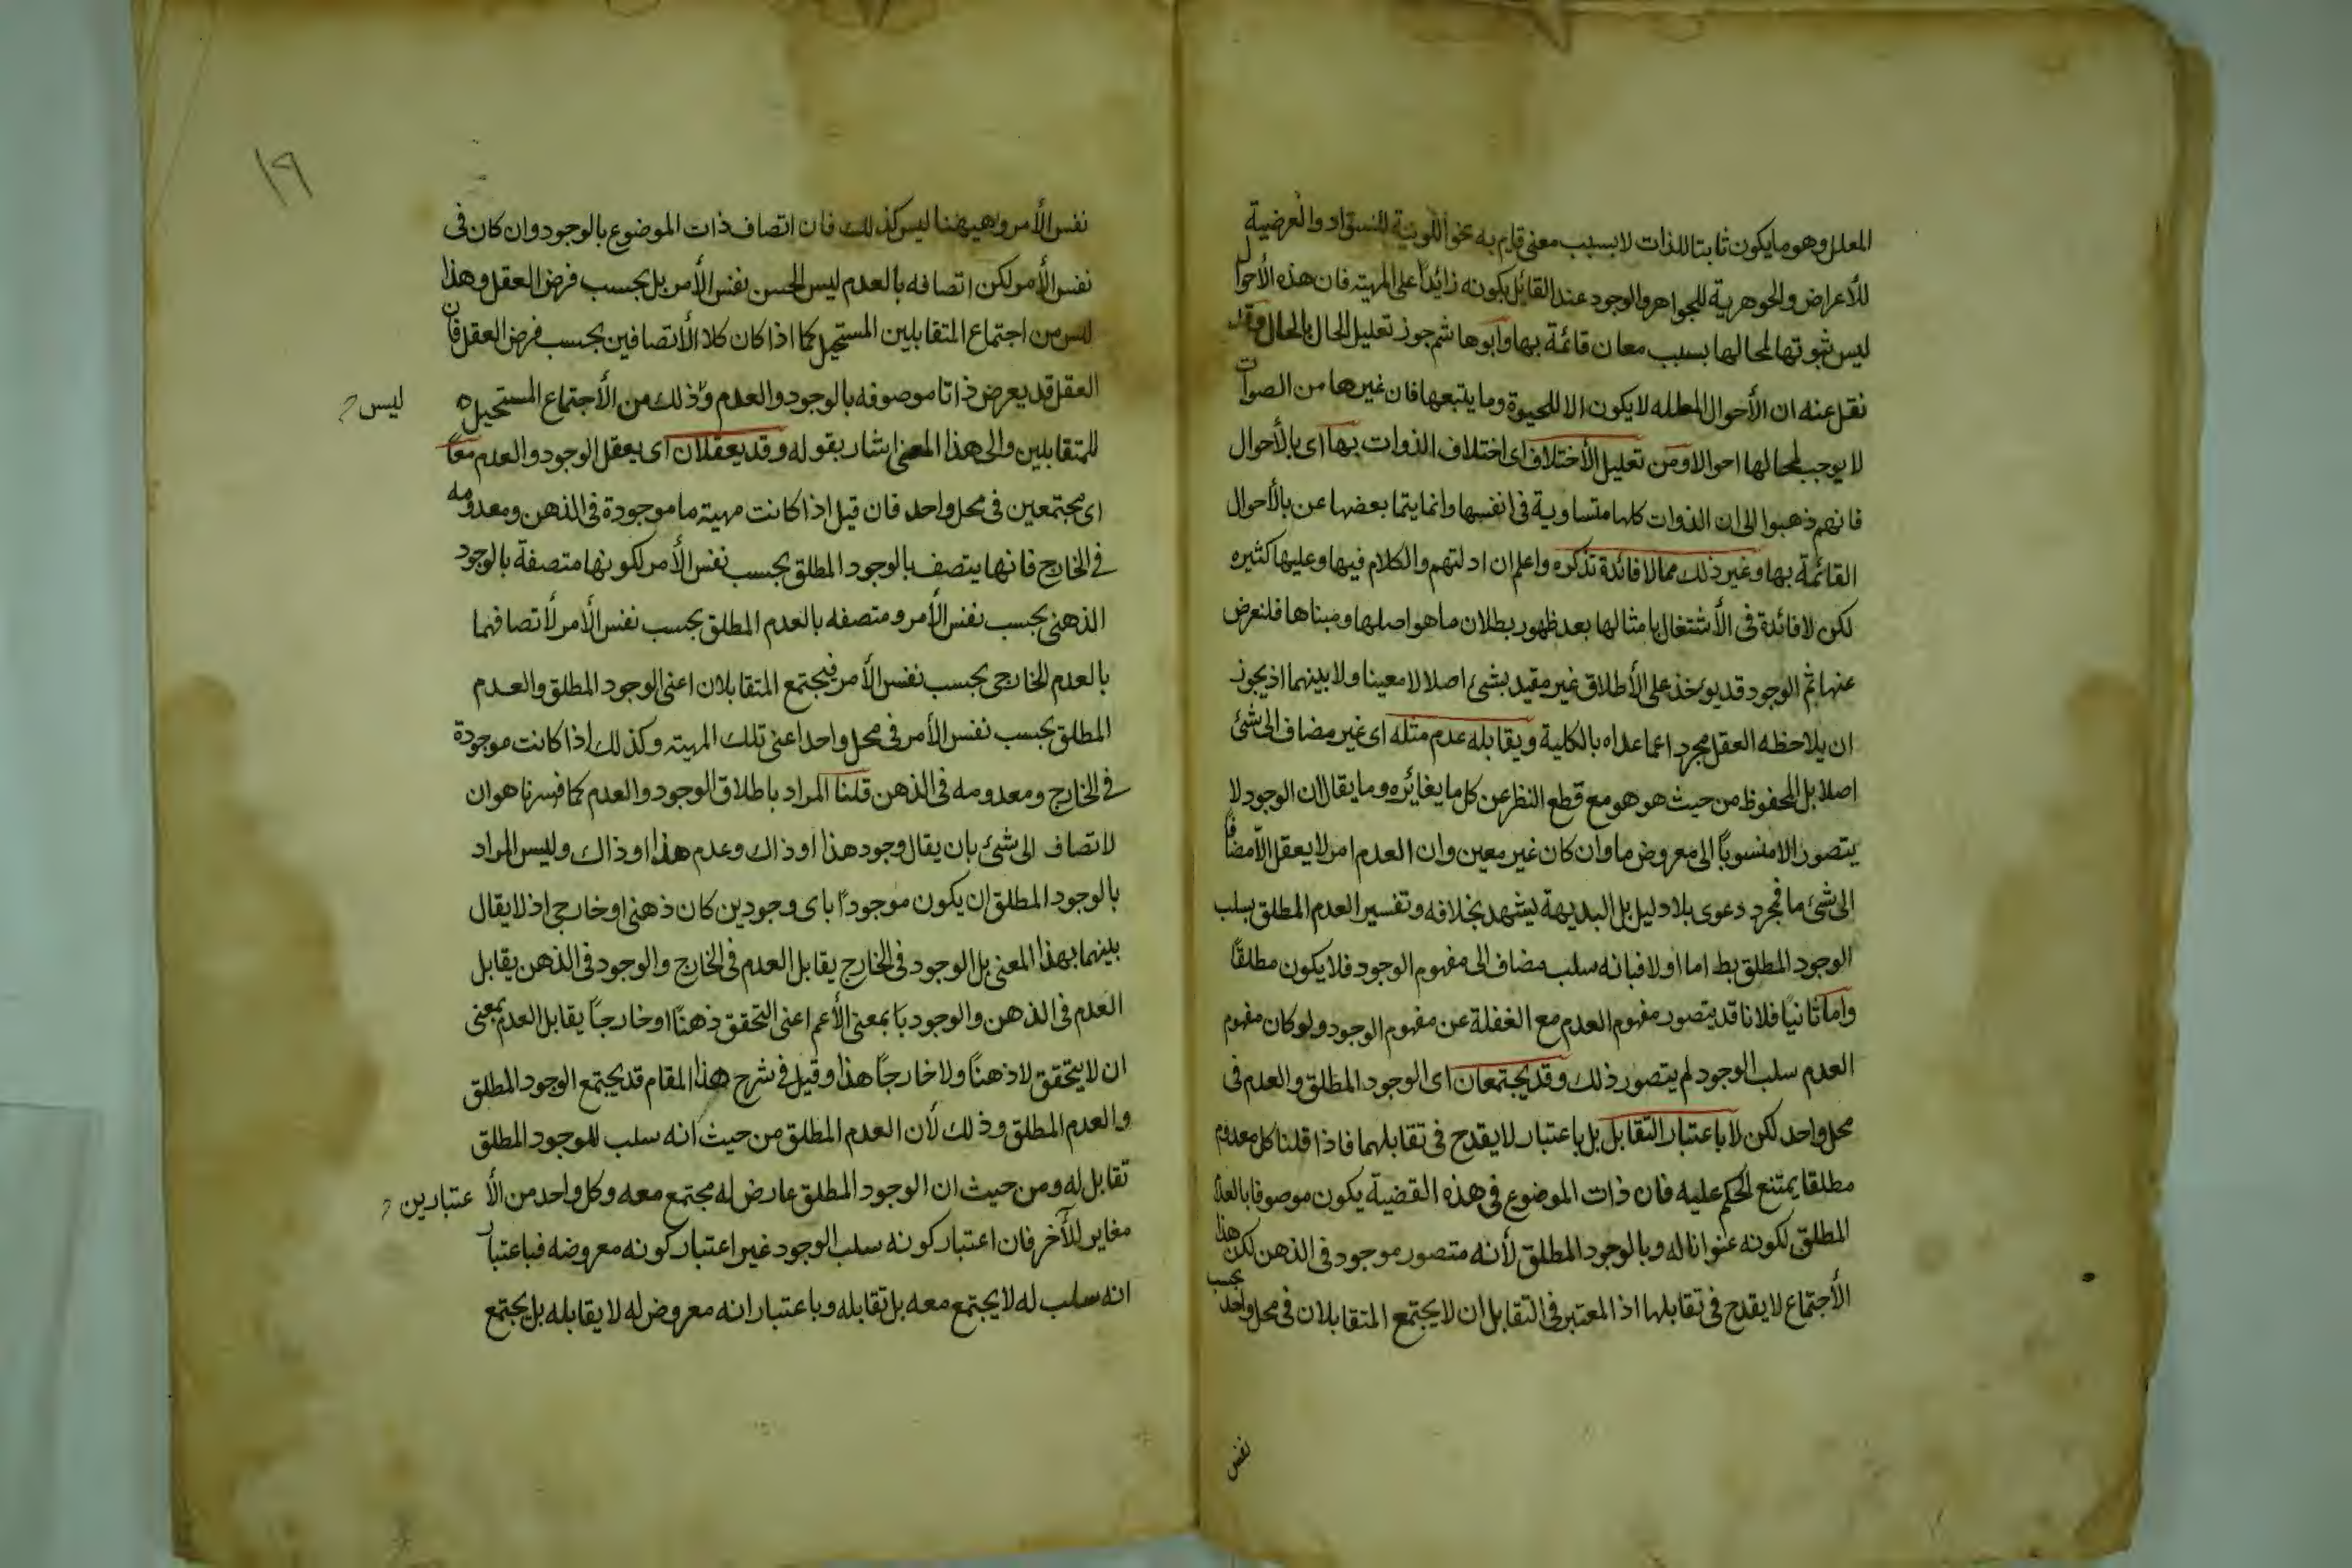 المعلل وهو ما يكون ثابتا للذات لا بسبب معنى قام به نحو اللونية للسواد والعرضية
للأعراض والجوهرية للجواهر والوجود عند القائل بكونه زائداً على المهية فان هذه الأحوال
ليس ثبوتها لمحالها بسبب معان قائمة بها وابوهاشم جوز تعليل الحال بالحال وقد
نقل عنه ان الأحوال المعلله لا يكون الا للحيوة وما يتبعها فان غيرها من الصوات
لا يوجب لمحالها احوالا ومن تعليل الأختلاف اى اختلاف الذوات بها اى بالأحوال
فانهم ذهبوا الى ان الذوات كلها متساوية فى انفسها وانما يتما بعضها عن بالأحوال
القائمة بها وغير ذلك مما لا فائدة تذكره واعلم ان ادلتهم والكلام فيها وعليها كثيره
لكن لا فائدة فى الأشتغال بامثالها بعد ظهور بطلان ما هو اصلها ومبناها فلنعرض
عنها ثم الوجود قد يوخذ على الأطلاق غير مقيد بشئ اصلا لا معينا ولا بينهما اذ يجوز
ان يلاحظه العقل مجردا عما عداه بالكلية ويقابله عدم مثله اى غير مضاف الى شئ
اصلا بل المحفوظ من حيث هو هو مع قطع النظر عن كل ما يغائره وما يقال ان الوجود لا
يتصور الا منسوباً الى معروض ما وان كان غير معين وان العدم امر لا يعقل الا مضافاً
الى شئ ما فمجرد دعوى بلا دليل بل البديهة يشهد بخلافه وتفسير العدم المطلق بسلب
الوجود المطلق بط اما اولا فبانه سلب مضاف الى مفهوم الوجود فلا يكون مطلقاً
واما ثانيا فلانا قد يتصور مفهوم العدم مع الغفلة عن مفهوم الوجود ولو كان مفهوم
العدم سلب الوجود لم يتصور ذلك وقد يجتمعان اى الوجود المطلق والعدم فى
محل واحد لكن لا باعتبار التقابل بل باعتبار لا يقدح فى تقابلهما فاذا قلنا كل معدوم
مطلقا يمتنع الحكم عليه فان ذات الموضوع فى هذه القضية يكون موصوفا بالعدم
المطلق لكونه عنوانا له وبالوجود المطلق لأنه متصور موجود فى الذهن لكن هذا
الأجتماع لا يقدح فى تقابلها اذ المعتبر فى التقابل ان لا يجتمع المتقابلان فى محل واحد بحسب
نفس
١٩
نفس الأمر وهيهنا ليس كذلك فان اتصاف ذات الموضوع بالوجود وان كان فى
نفس الأمر لكن اتصافه بالعدم ليس نفس الأمر بل بحسب فرض العقل وهذا
ليس من اجتماع المتقابلين المستحيل كما اذا كان كلا الأتصافين بحسب فرض العقل فان
العقل قد يعرض ذاتا موصوفه بالوجود والعدم وذلك من الأجتماع المستحيل
ليس
للمتقابلين والى هذا المعنى اشار بقوله وقد يعقلان اى يعقل الوجود والعدم معاً
اى مجتمعين فى محل واحد فان قيل اذا كانت مهيته ما موجودة فى الذهن ومعدومه
فى الخارج فانها يتصف بالوجود المطلق بحسب نفس الأمر لكونها متصفة بالوجود
الذهنى بحسب نفس الأمر ومتصفه بالعدم المطلق بحسب نفس الأمر لأتصافها
بالعدم الخارجى بحسب نفس الأمر فيجتمع المتقابلان اعنى الوجود المطلق والعدم
المطلق بحسب نفس الأمر فى محل واحد اعنى تلك المهيته وكذلك اذا كانت موجودة
فى الخارج ومعدومه فى الذهن قلنا المراد باطلاق الوجود والعدم كما فسرنا هو ان
لاتصاف الى شئ بان يقال وجود هذا اوذاك وعدم هذا اوذاك وليس المراد
بالوجود المطلق ان يكون موجوداً باى وجودين كان ذهنى او خارجى اذ لا يقال
بينهما بهذا المعنى بل الوجود فى الخارج يقابل العدم فى الخارج والوجود فى الذهن يقابل
العدم فى الذهن والوجود بمعنى الأعم اعنى التحقق ذهناً او خارجاً يقابل العدم بمعنى
ان لا يتحقق لا ذهناً ولا خارجاً هذا وقيل فى شرح هذا المقام قد يجتمع الوجود المطلق
والعدم المطلق وذلك لأن العدم المطلق من حيث انه سلب للوجود المطلق
تقابل له ومن حيث ان الوجود المطلق عارض له مجتمع معه وكل واحد من الأعتبارين
مغاير للأخر فان اعتبار كونه سلب الوجود غير اعتبار كونه معروضه فباعتبار
انه سلب له لا يجتمع معه بل تقابله وباعتبار انه معروض له لا يقابله بل يجتمع